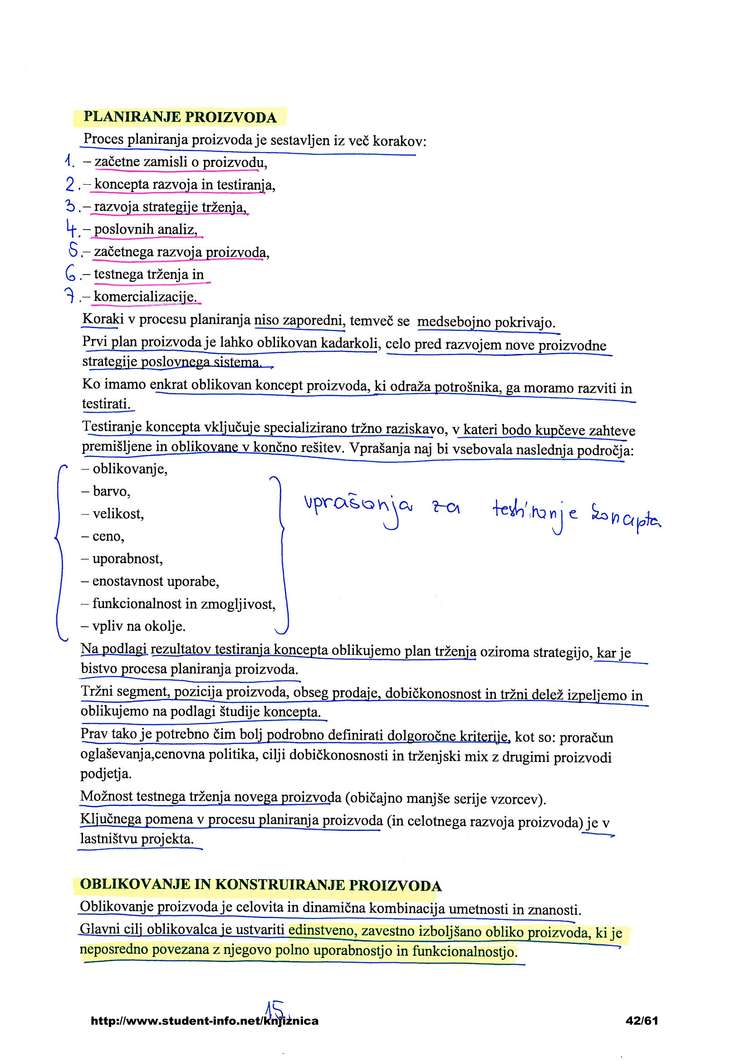 PLANIRANJE PROIZVODA
Proces planiranja proizvoda je sestavljen iz več korakov:
1. – začetne zamisli o proizvodu,
2. – koncepta razvoja in testiranja,
3. – razvoja strategije trženja,
4. – poslovnih analiz,
5. – začetnega razvoja proizvoda,
6. – testnega trženja in
7. – komercializacije.
Koraki v procesu planiranja niso zaporedni, temveč se medsebojno pokrivajo.
Prvi plan proizvoda je lahko oblikovan kadarkoli, celo pred razvojem nove proizvodne
strategije poslovnega sistema.
Ko imamo enkrat oblikovan koncept proizvoda, ki odraža potrošnika, ga moramo razviti in
testirati.
Testiranje koncepta vključuje specializirano tržno raziskavo, v kateri bodo kupčeve zahteve
premišljene in oblikovane v končno rešitev. Vprašanja naj bi vsebovala naslednja področja:
– oblikovanje,
– barvo,
– velikost,
vprašanja za testiranje koncepta
– ceno,
– uporabnost,
– enostavnost uporabe,
– funkcionalnost in zmogljivost,
– vpliv na okolje.
Na podlagi rezultatov testiranja koncepta oblikujemo plan trženja oziroma strategijo, kar je
bistvo procesa planiranja proizvoda.
Tržni segment, pozicija proizvoda, obseg prodaje, dobičkonosnost in tržni delež izpeljemo in
oblikujemo na podlagi študije koncepta.
Prav tako je potrebno čim bolj podrobno definirati dolgoročne kriterije, kot so: proračun
oglaševanja,cenovna politika, cilji dobičkonosnosti in trženjski mix z drugimi proizvodi
podjetja.
Možnost testnega trženja novega proizvoda (običajno manjše serije vzorcev).
Ključnega pomena v procesu planiranja proizvoda (in celotnega razvoja proizvoda) je v
lastništvu projekta.
OBLIKOVANJE IN KONSTRUIRANJE PROIZVODA
Oblikovanje proizvoda je celovita in dinamična kombinacija umetnosti in znanosti.
Glavni cilj oblikovalca je ustvariti edinstveno, zavestno izboljšano obliko proizvoda, ki je
neposredno povezana z njegovo polno uporabnostjo in funkcionalnostjo.
15.
http://www.student-info.net/knjiznica 42/61